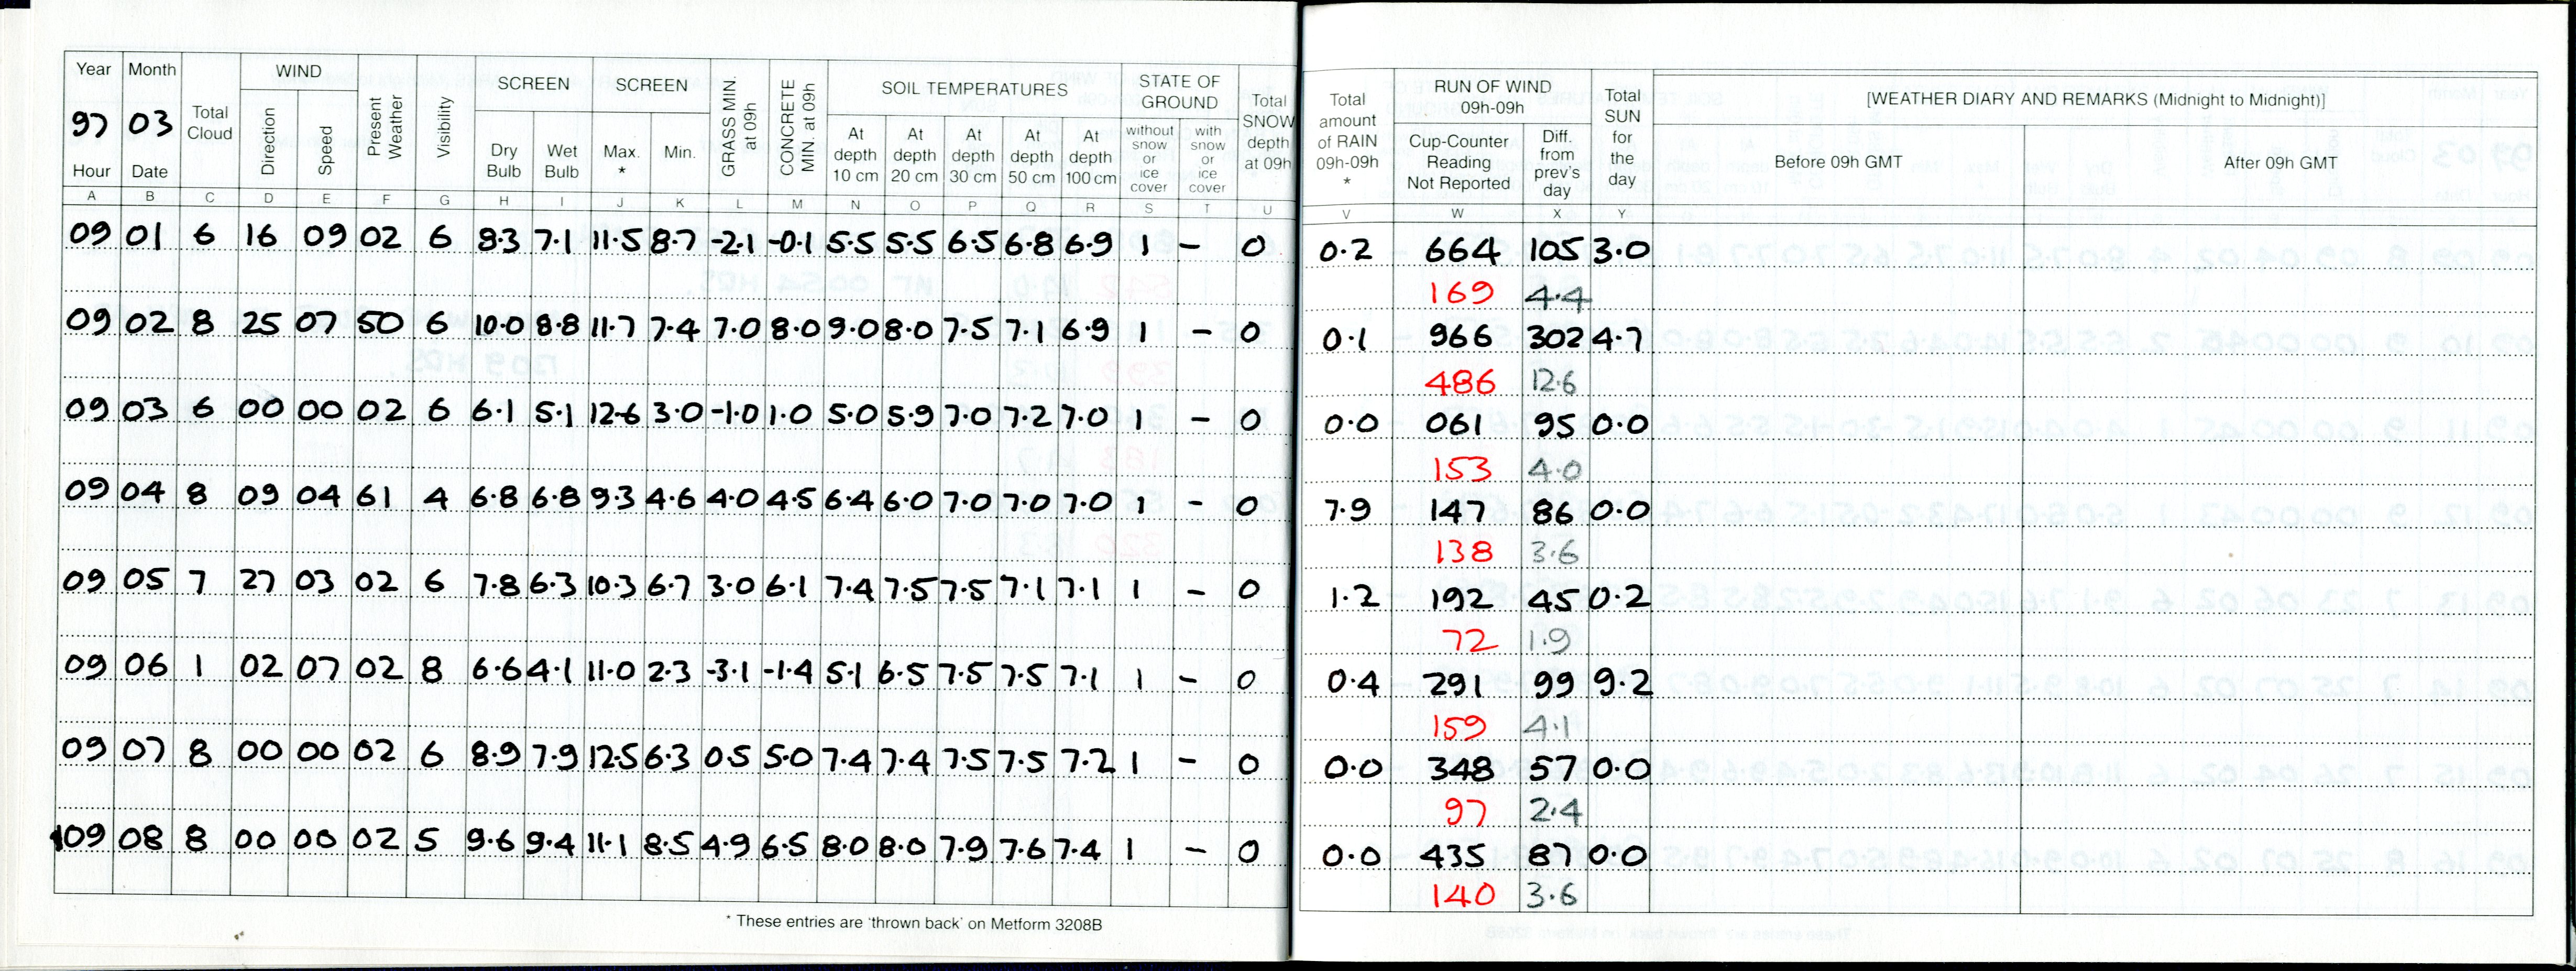 Year Month Total Cloud WIND Present Weather Visibility SCREEN SCREEN GRASS MIN. at 09h CONCRETE MIN. at 09h SOIL TEMPERATURES STATE OF GROUND Total SNOW depth at 09h Total amount of RAIN 09h-09h * RUN OF WIND 09h-09h Total SUN for the day [WEATHER DIARY AND REMARKS (Midnight to Midnight)]
97 03 Direction Speed Dry Bulb Wet Bulb Max. * Min. At depth 10 cm At depth 20 cm At depth 30 cm At depth 50 cm At depth 100 cm without snow or ice cover with snow or ice cover Cup-Counter Reading Not Reported Diff. from prev's day Before 09h GMT After 09h GMT
Hour Date
A B C D E F G H I J K L M N O P Q R S T U V W X Y
09 01 6 16 09 02 6 8.3 7.1 11.5 8.7 -2.1 -0.1 5.5 5.5 6.5 6.8 6.9 1 – 0 0.2 664 105 3.0
169 4.4
09 02 8 25 07 50 6 10.0 8.8 11.7 7.4 7.0 8.0 9.0 8.0 7.5 7.1 6.9 1 – 0 0.1 966 302 4.7
486 12.6
09 03 6 00 00 02 6 6.1 5.1 12.6 3.0 -1.0 1.0 5.0 5.9 7.0 7.2 7.0 1 – 0 0.0 061 95 0.0
153 4.0
09 04 8 09 04 61 4 6.8 6.8 9.3 4.6 4.0 4.5 6.4 6.0 7.0 7.0 7.0 1 – 0 7.9 147 86 0.0
138 3.6
09 05 7 27 03 02 6 7.8 6.3 10.3 6.7 3.0 6.1 7.4 7.5 7.5 7.1 7.1 1 – 0 1.2 192 45 0.2
72 1.9
09 06 1 02 07 02 8 6.6 4.1 11.0 2.3 -3.1 -1.4 5.1 6.5 7.5 7.5 7.1 1 – 0 0.4 291 99 9.2
159 4.1
09 07 8 00 00 02 6 8.9 7.9 12.5 6.3 0.5 5.0 7.4 7.4 7.5 7.5 7.2 1 – 0 0.0 348 57 0.0
97 2.4
09 08 8 00 00 02 5 9.6 9.4 11.1 8.5 4.9 6.5 8.0 8.0 7.9 7.6 7.4 1 – 0 0.0 435 87 0.0
140 3.6
* These entries are 'thrown back' on Metform 3208B